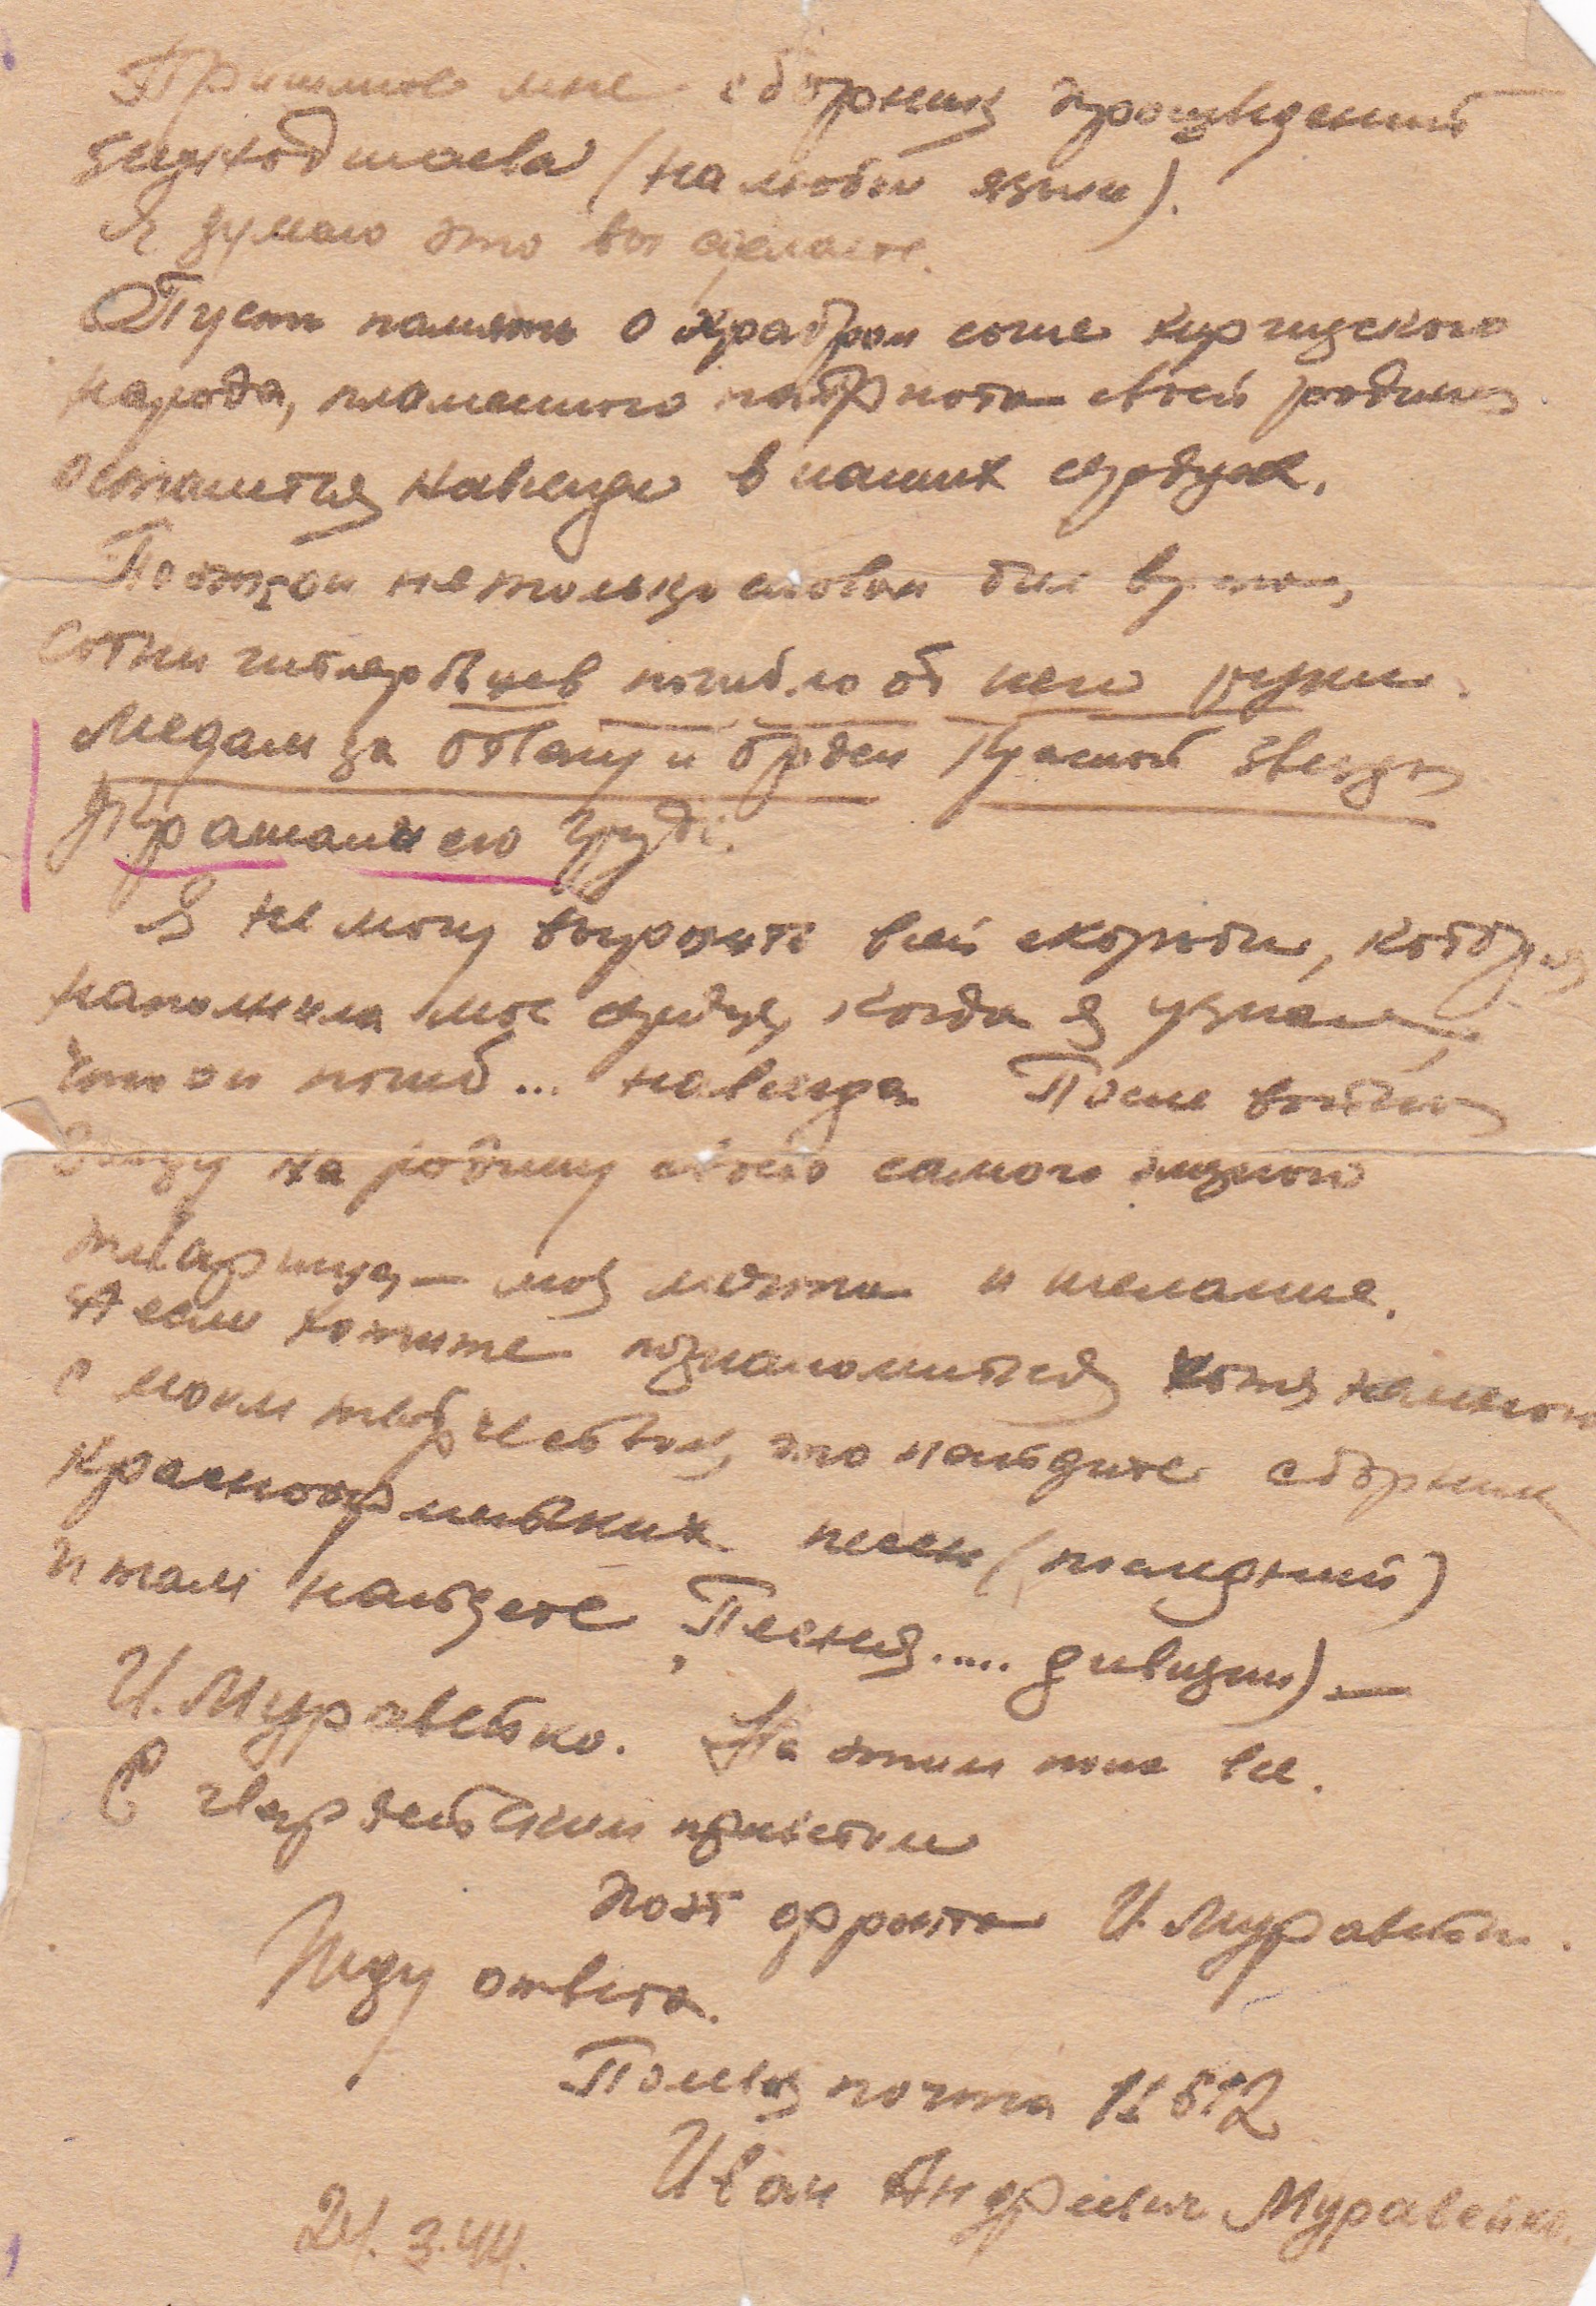 Пришлите мне сборник произведений
(на любом языке).
Я думаю это вы сделаете.
Пусть память о храбром сыне киргизского
народа, пламенного патриота своей родины
останется навсегда в наших сердцах.
Поэт не только словом бил врага,
Сотни гитлеровцев погибло от его руки.
Медали за Отвагу и орден Красной звезды
украшали его грудь.
Я не могу выразить всей скорби, которая
наполнила мое сердце, когда я узнал,
что он погиб... навсегда После войны
Заеду на родину своего самого
товарища, — моя мечта и желание.
А если хотите познакомиться хотя немного
с моим творчеством, то найдите сборник
красноармейских песен (последний)
и там найдете „Песня..... дивизии) —
И. Муравейко. На этом пока все.
С гвардейским приветом
поэт фронта И. Муравейко.
Жду ответа.
Полевая почта
Иван Андреевич Муравейко.
24. 3.44.